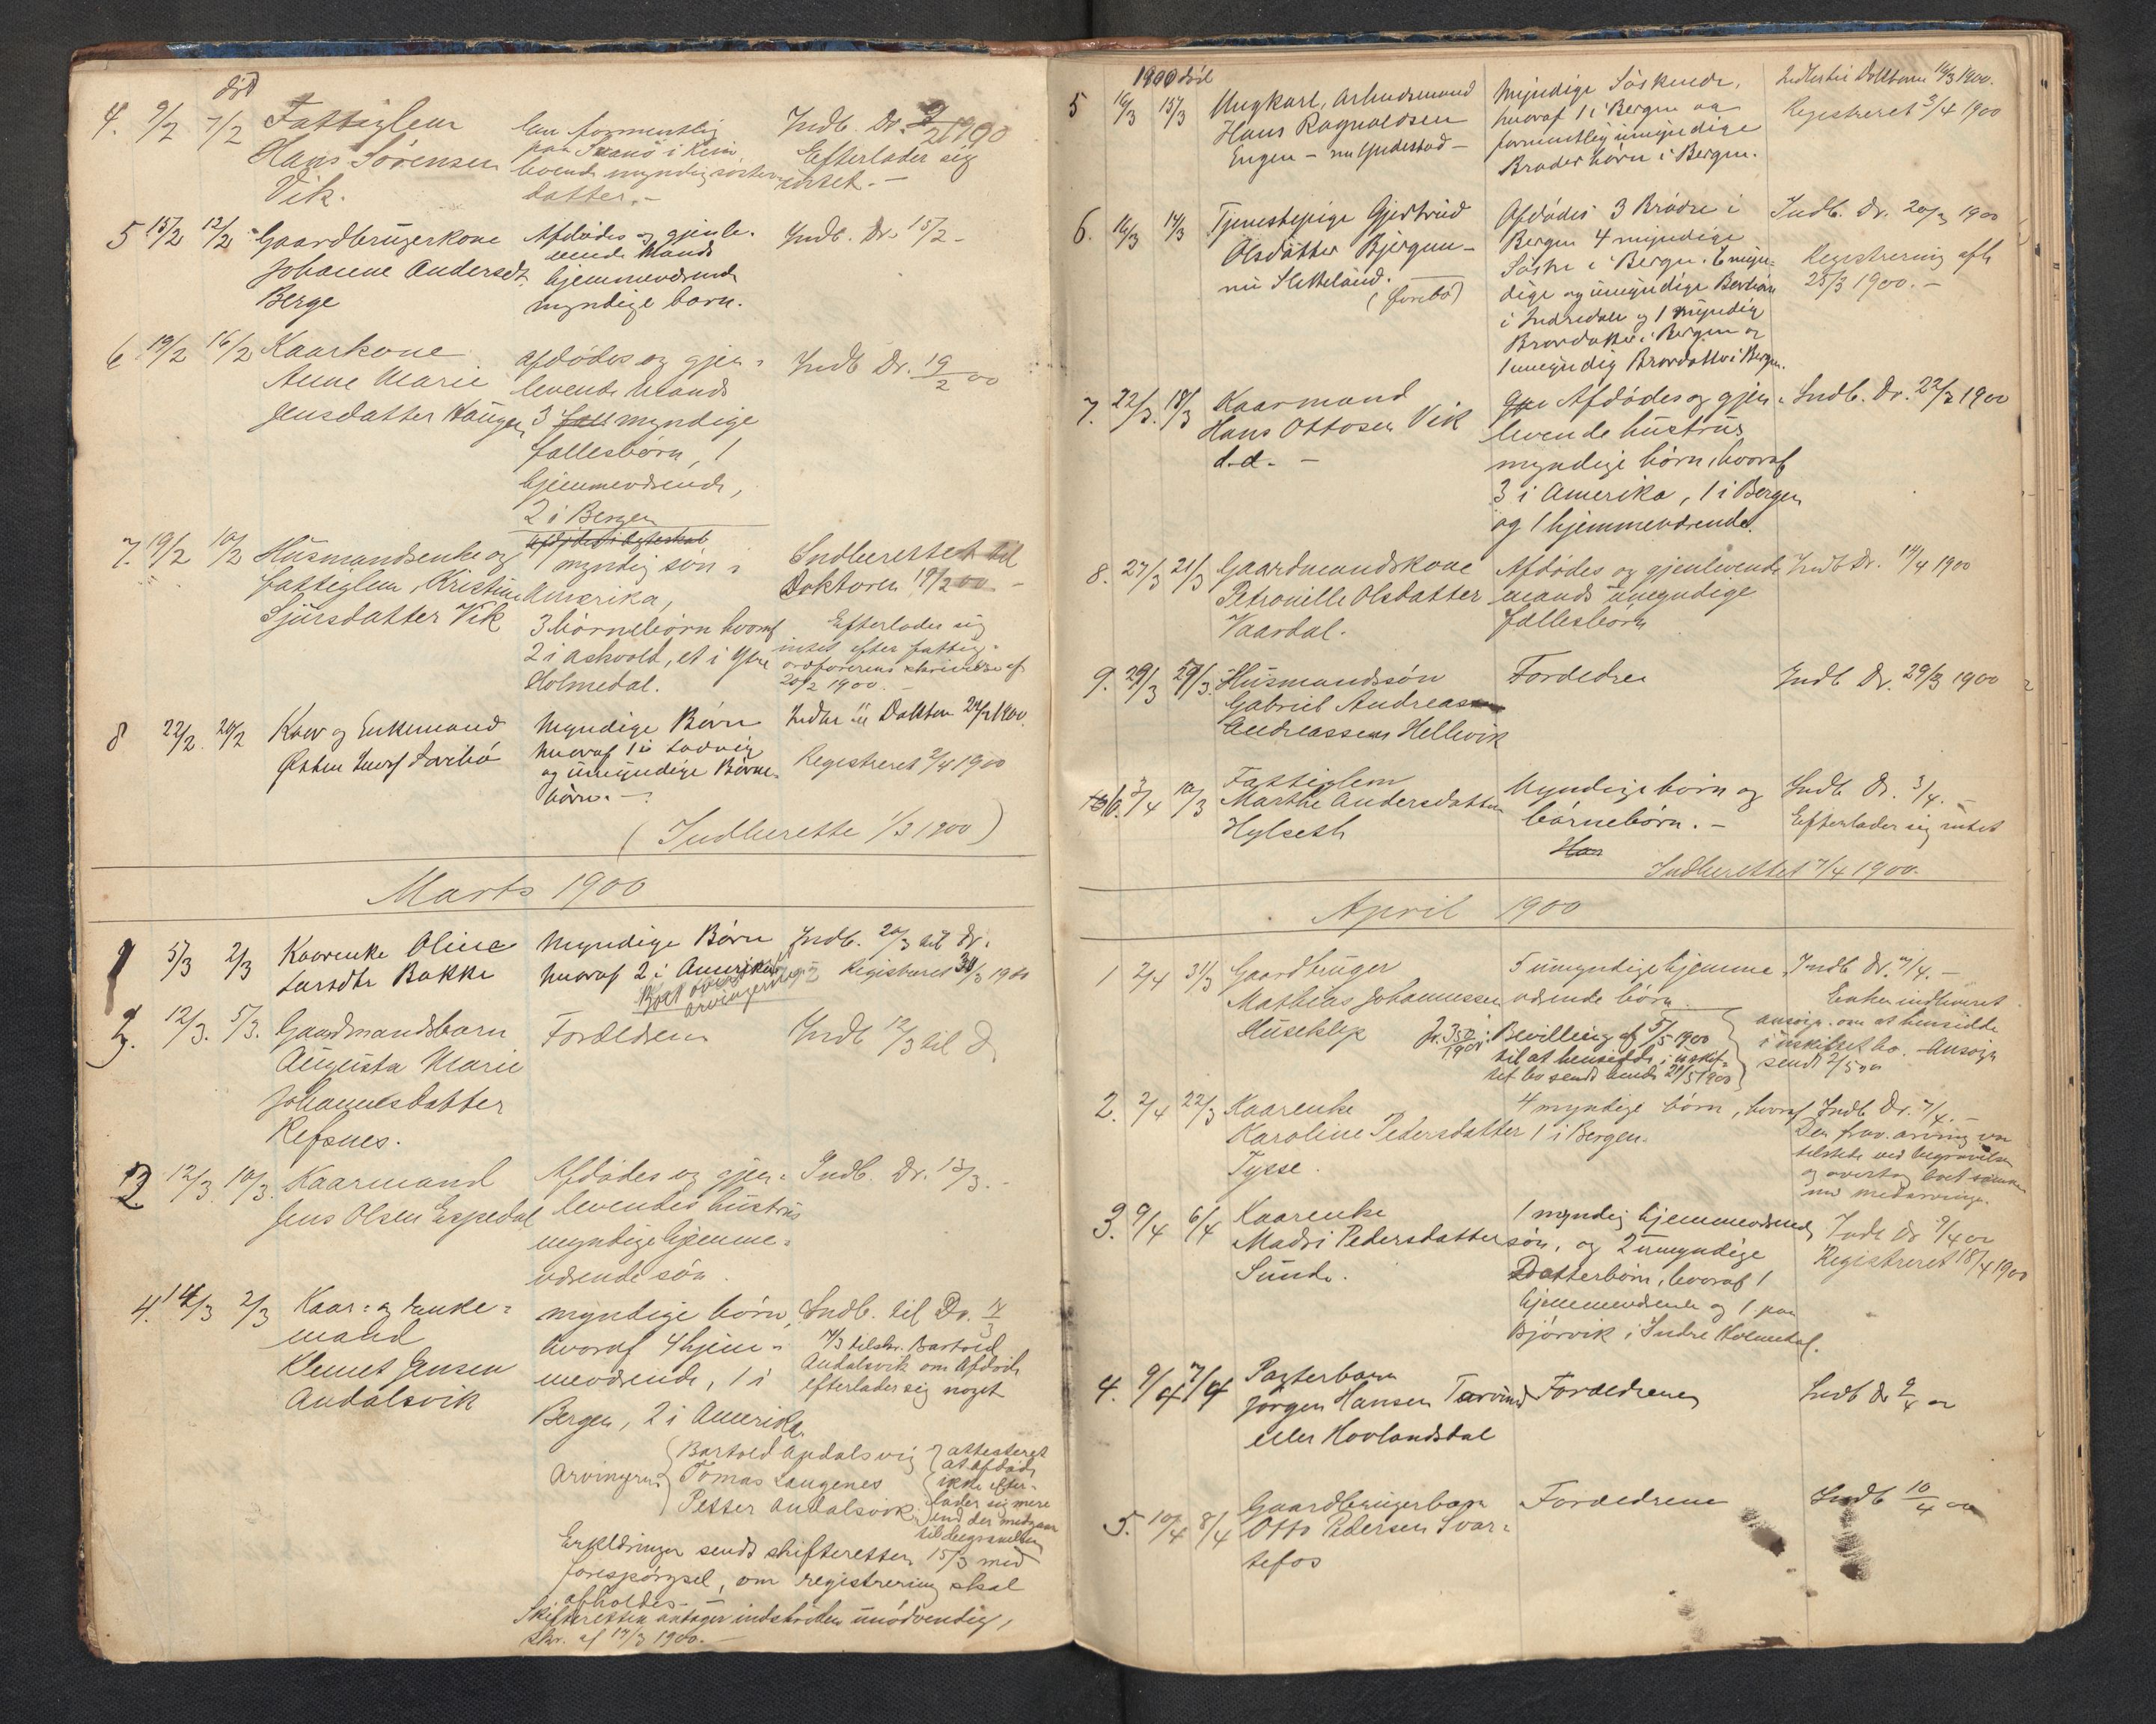 död
4. 9/2 7/2 Fattiglem
Hans Sörensen
Vik.
kun formentlig
paa Svanö i Kinn
boende myndig söster-
datter.-
Indb. Dr. 9/2 1900
Efterlader sig
intet.-
5 15/2 12/2 Gaardbrugerkone
Johanne Andersdt.
Berge
Afdödes og gjenle-
vende Mands
hjemmeværende
myndige barn.
Indb. Dr. 15/2-
6 19/2 16/2 Kaarkone
Anne Marie
Jensdatter Haugen
afdödes og gjen-
levende Mands
3 myndige
fællesbörn, 1
hjemmeværende,
2 i Bergen
7. 19/2 10/2 Husmandsenke og
fattiglem Kristine
Sjursdatter Vik
Indb Dr. 19/2 00
1 myndig sön i
Amerika,
3 börnebörn hvoraf
2 i Askvold, et i Ytre
Holmedal.
Indberettet til
Doktoren 19/2 00-
Efterlader sig
intet efter fattig-
ordförerens skrivelse af
20/2 1900.-
8 22/2. 20/2 Kaar og Enkemand
Myndige Börn
hvoraf 1 i Ladvig
og umyndige Börne-
börn.-
Registreret 2/4 1900
(Indberette 1/3 1900)
Marts 1900
1 5/3 2/3 Kaarenke Oline
Larsdtr Bakke
Myndige Börn
hvoraf 2 i Amerika
Indb. 20/3 til Dr.
Registreret 31/3 1900
2. 12/3. 5/3. Gaardmandsbarn
Augusta Marie
Johannesdatter
Refsnes.
Forældrene
Indb 12/3 til D
3. 12/3. 10/3. Kaarmand
Jens Olsen Espedal
Afdödes og gjen-
levendes hustrus
myndige hjemme-
værende sön.
Indb. Dr. 13/3.-
4. 14/3 2/3 Kaar- og Enke-
mand
Klemet Jensen
Andalsvik
myndige börn,
hvoraf 4 hjem-
meværende, 1 i
Bergen, 2 i Amerika.
Indb. til Dr. 7/3
7/3 tilskr. Bartold
Andalsvik om Afdöde
efterlader sig noget
Arvingerne
Bartold Andalsvig
Tomas Langenes
Petter Andalsvik
attesteret
at afdöde
ikke efter-
lader sig mere
end der medgaar
til begravelsen
Erklæringen sendt skifteretten 15/3 med
forespörgsel, om registrering skal
afholdes.-
Skifteretten antager indskriden unödvendig,
Skr. af 17/3 1900.-
1900 död
5 16/3 15/3 Ungkarl, Arbeidsmand
Hans Ragnaldsen
Engen - nu Yndestad-
Myndige Söskende,
hvoraf 1 i Bergen og
formentlig umyndige
Broderbörn i Bergen.
Registreret 3/4 1900
6. 16/3 14/3 Tjenestepige Gjertrud
Olsdatter
nu Sletteland.
Afdödes 3 Brödre i
Bergen 4 myndige
Söstre i Bergen. 6 myn-
dige og umyndige
i Indredale og 1 myndig
Brordatter i Bergen og
1 umyndig Brordatter i Bergen.
Indb. Dr. 20/3 1900
Registrering afh
25/3 1900.-
7. 22/3. 18/3 Kaarmand
Hans Ottosen Vik
d.d.-
Afdödes og gjen-
levende hustrus
myndige börn, hvoraf
3 i Amerika, 1 i Bergen
og 1 hjemmeværende.
Indb. Dr. 22/3 1900
8. 27/3 21/3 Gaardmandskone
Petronille Olsdatter
Vaardal.
Afdödes og gjenlevende
mands umyndige
fællesbörn
Indb Dr. 14/4 1900
9. 29/3 Husmandssön
Gabriel
Andreassen Hellevik
Forældre
Indb Dr. 29/3 1900
10. 3/4 10/3 Fattiglem
Marthe Andersdatter
Hylseth
Myndige börn og
börnebörn.-
Indb Dr. 3/4.-
Efterlader sig intet
Indberettet 7/4 1900.
April 1900
1 2/4 31/3 Gaardbruger
Mathias Johannessen
Huseklep
5 umyndige hjemme
værende börn.
Indb Dr. 7/4.-
Enken indleveret
ansögn. om at hensidde
i uskiftet bo. Ansögn
sendt 2/5 00
Bevilling af 5/5 1900
til at hensidde i uskif-
tet bo sendt hende 21/5 1900
2. 2/4 22/3 Kaarenke
Karoline Pedersdatter
Tysse.
4 myndige börn, hvoraf
1 i Bergen.
Indb Dr. 7/4.-
Den frav. arving var
tilstede ved begravelsen
og overtog boet sammen
med medarvinger.
3. 9/4 6/4 Kaarenke
Madri Pedersdatter
Sunde.
1 myndig hjemmeværende
sön, og 2 umyndige
Datterbörn, hvoraf 1
hjemmeværende og 1 paa
Björvik i Indre Holmedal.
Indb Dr 9/4 00
Registreret 18/4 1900
4. 9/4 7/4 Pagterbarn
Jörgen Hansen
eller Hovlandsdal
Forældrene
Indb Dr 9/4 00
5. 10/4 8/4 Gaardbrugerbarn
Otto Pedersen Svar-
tefos
Forældrene
Indb 10/4 00